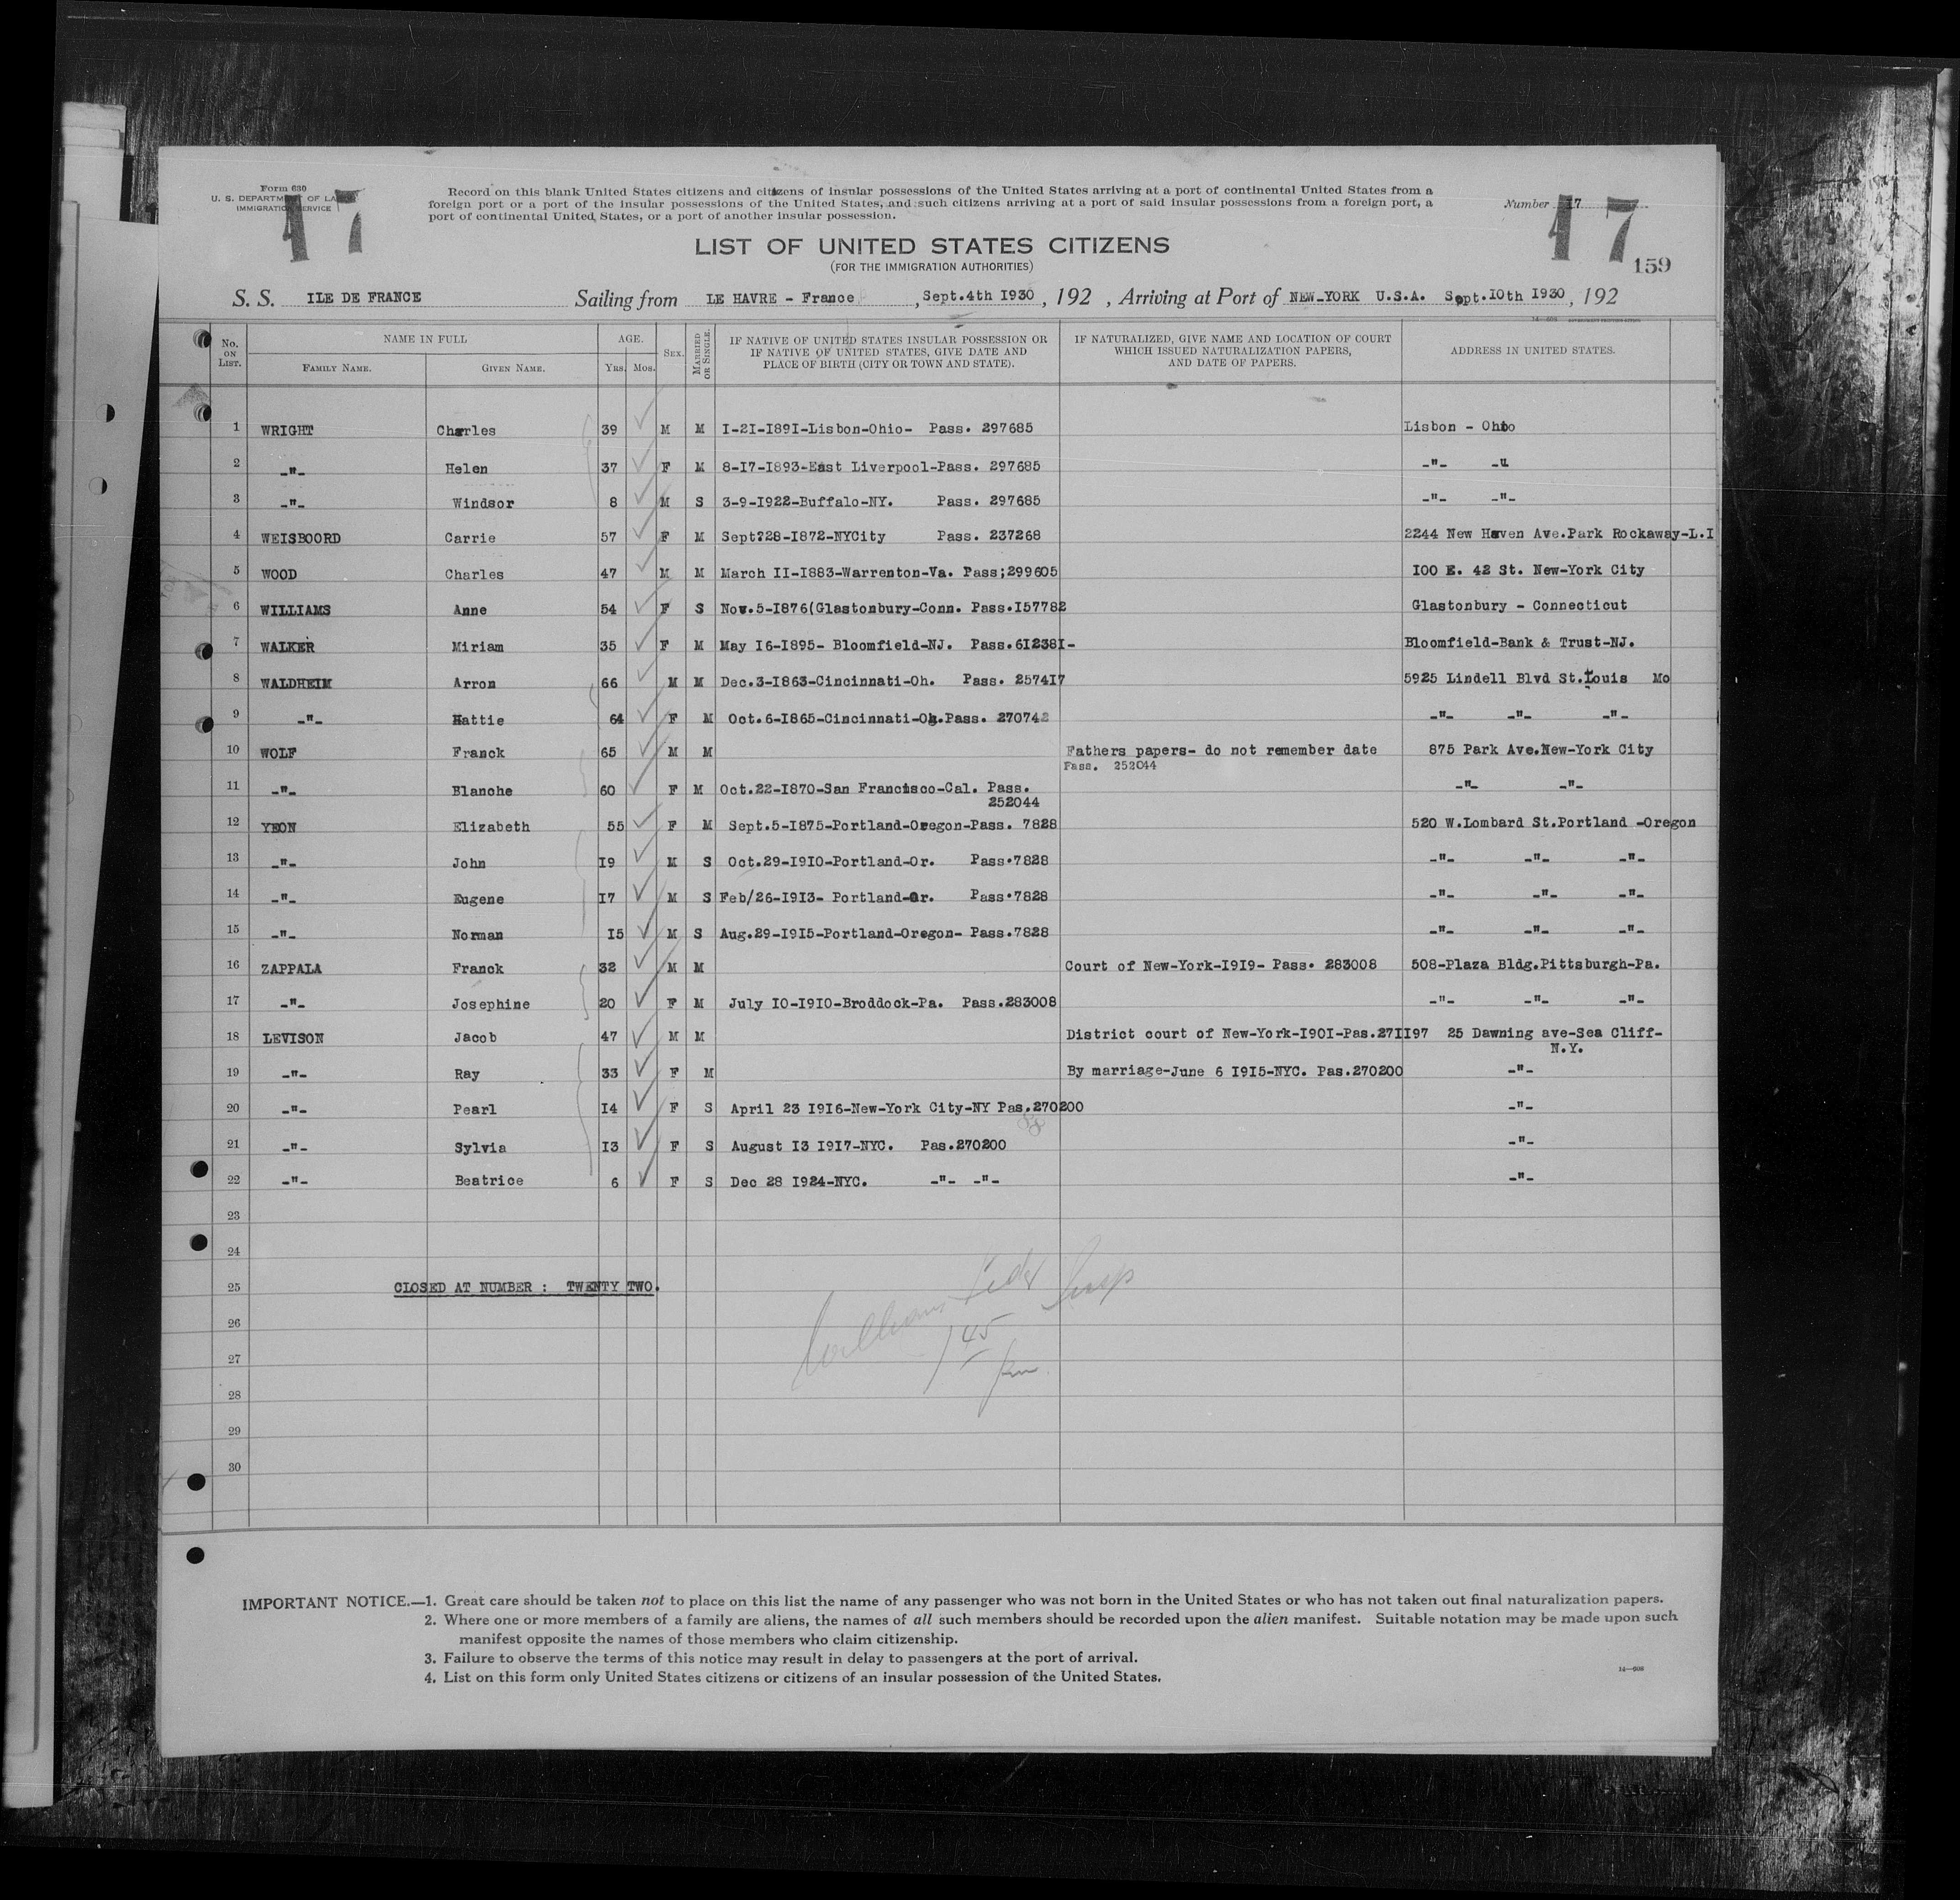 Form 630
U. S. DEPARTMENT OF LABOR
IMMIGRATION SERVICE
17
Record on this blank United States citizens and citizens of insular possessions of the United States arriving at a port of continental United States from a
foreign port or a port of the insular possessions of the United States, and such citizens arriving at a port of said insular possessions from a foreign port, a
port of continental United States, or a port of another insular possession.
Number 17
17
159
LIST OF UNITED STATES CITIZENS
(FOR THE IMMIGRATION AUTHORITIES)
S. S. ILE DE FRANCE Sailing from LE HAVRE - France , Sept.4th I930 , 192 , Arriving at Port of NEW-YORK U.S.A. Sept.I0th I930 , 192
No. ON LIST. NAME IN FULL FAMILY NAME. GIVEN NAME. AGE. YRS. MOS. SEX. MARRIED OR SINGLE. IF NATIVE OF UNITED STATES INSULAR POSSESSION OR IF NATIVE OF UNITED STATES, GIVE DATE AND PLACE OF BIRTH (CITY OR TOWN AND STATE). IF NATURALIZED, GIVE NAME AND LOCATION OF COURT WHICH ISSUED NATURALIZATION PAPERS, AND DATE OF PAPERS. ADDRESS IN UNITED STATES.
1 WRIGHT Charles 39 M M I-2I-I89I-Lisbon-Ohio- Pass. 297685 Lisbon - Ohio
2 -"- Helen 37 F M 8-I7-I893-East Liverpool-Pass. 297685 -"- -"
3 -"- Windsor 8 M S 3-9-I922-Buffalo-NY. Pass. 297685 -"- -"-
4 WEISBOORD Carrie 57 F M Sept?28-I872-NYCity Pass. 237268 2244 New Haven Ave.Park Rockaway-L.I
5 WOOD Charles 47 M M March II-I883-Warrenton-Va. Pass;299605 I00 E. 42 St. New-York City
6 WILLIAMS Anne 54 F S Nov.5-I876(Glastonbury-Conn. Pass.I57782 Glastonbury - Connecticut
7 WALKER Miriam 35 F M May I6-I895- Bloomfield-NJ. Pass.6I238I- Bloomfield-Bank & Trust-NJ.
8 WALDHEIM Arron 66 M M Dec.3-I863-Cincinnati-Oh. Pass. 2574I7 5925 Lindell Blvd St.Louis Mo
9 -"- Hattie 64 F M Oct.6-I865-Cincinnati-Oh.Pass. 270742 -"- -"- -"-
10 WOLF Franck 65 M M Fathers papers- do not remember date 875 Park Ave.New-York City
Pass. 252044
11 -"- Blanche 60 F M Oct.22-I870-San Francisco-Cal. Pass. -"- -"-
252044
12 YEON Elizabeth 55 F M Sept.5-I875-Portland-Oregon-Pass. 7828 520 W.Lombard St.Portland -Oregon
13 -"- John I9 M S Oct.29-I9I0-Portland-Or. Pass.7828 -"- -"- -"-
14 -"- Eugene I7 M S Feb/26-I9I3- Portland-Or. Pass.7828 -"- -"- -"-
15 -"- Norman I5 M S Aug.29-I9I5-Portland-Oregon- Pass.7828 -"- -"- -"-
16 ZAPPALA Franck 32 M M Court of New-York-I9I9- Pass. 283008 508-Plaza Bldg.Pittsburgh-Pa.
17 -"- Josephine 20 F M July I0-I9I0-Broddock-Pa. Pass.283008 -"- -"- -"-
18 LEVISON Jacob 47 M M District court of New-York-I90I-Pas.27II97 25 Dawning ave-Sea Cliff-
N.Y.
19 -"- Ray 33 F M By marriage-June 6 I9I5-NYC. Pas.270200 -"-
20 -"- Pearl I4 F S April 23 I9I6-New-York City-NY Pas.270200 -"-
21 -"- Sylvia I3 F S August I3 I9I7-NYC. Pas.270200 -"-
22 -"- Beatrice 6 F S Dec 28 I924-NYC. -"- -"- -"-
23
24
25 CLOSED AT NUMBER : TWENTY TWO.
26
27
28
29
30
145
IMPORTANT NOTICE.—1. Great care should be taken not to place on this list the name of any passenger who was not born in the United States or who has not taken out final naturalization papers.
2. Where one or more members of a family are aliens, the names of all such members should be recorded upon the alien manifest. Suitable notation may be made upon such
manifest opposite the names of those members who claim citizenship.
3. Failure to observe the terms of this notice may result in delay to passengers at the port of arrival.
4. List on this form only United States citizens or citizens of an insular possession of the United States.
14—608